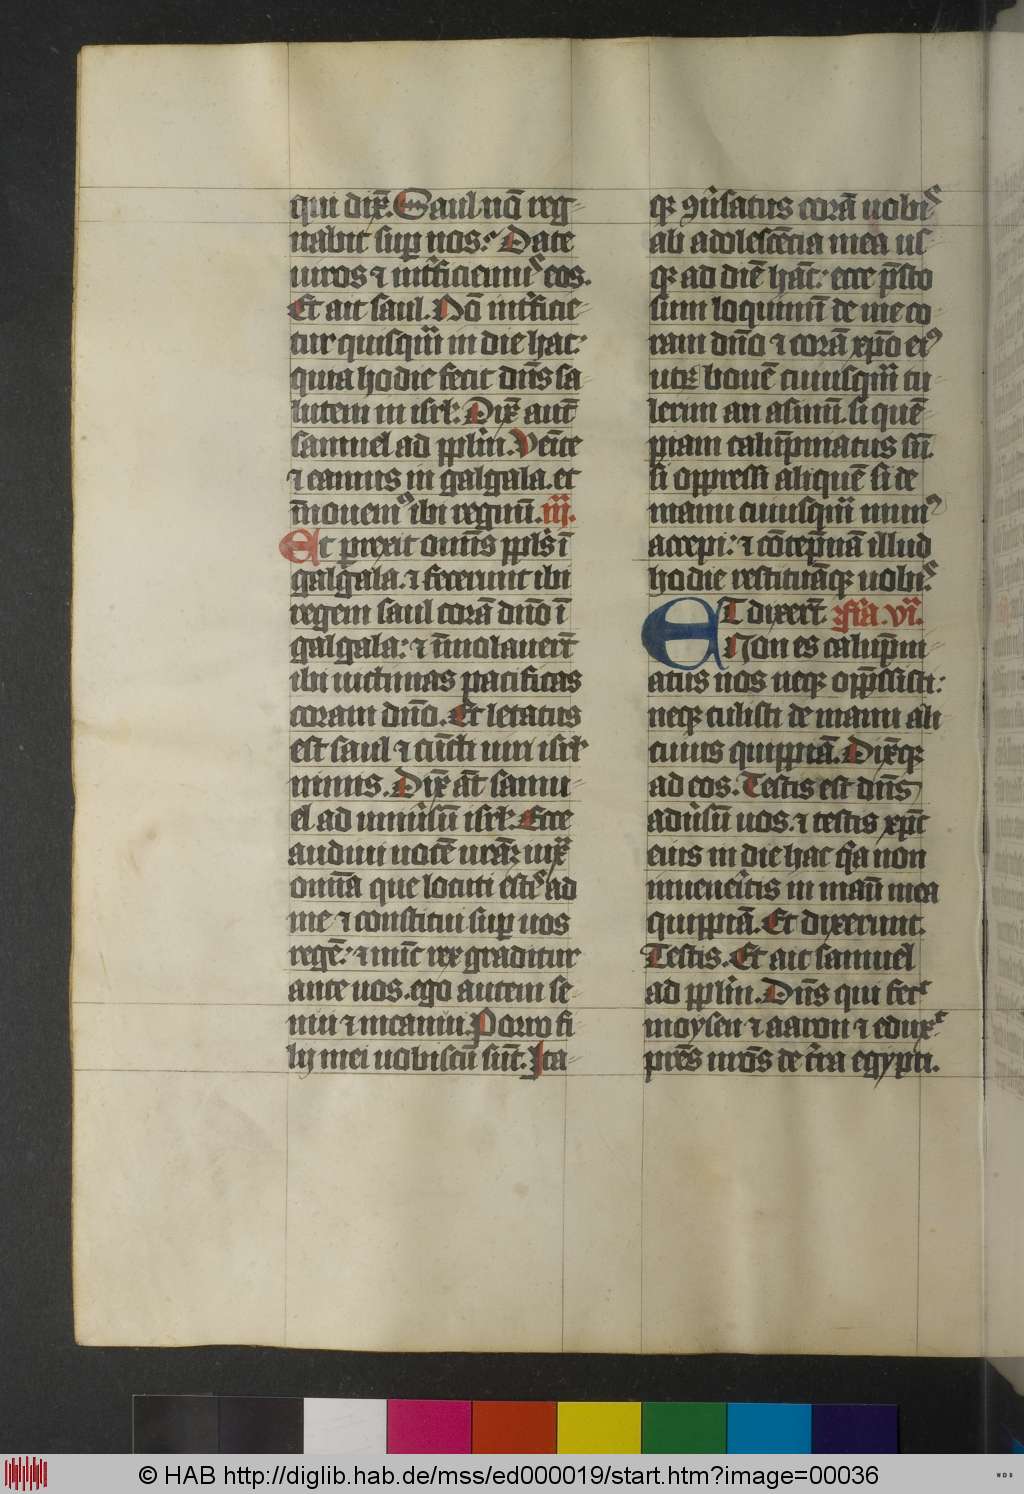 qui dix̄. Saul nō reg-
nabit sup nos: Date
uiros ⁊ int̉ficiemꝰ eos.
Et ait saul. Nō int̉ficie-
tur quisqm̄ in die hac:
quia hodie fecit dn̄s sa-
lutem in isrl̄. Dix̄ aut̄
samuel ad ppl̄m. Venite
⁊ eamus in galgala. et
īnouemꝰ ibi regnū. iij.
Et prexit omīs ppl̄s ī
galgala. ⁊ fecerunt ibi
regem saul corā dn̄o ī
galgala: ⁊ īmolauert̄
ibi uictimas pacificas
coram dn̄o. Et letatus
est saul ⁊ cūcti uiri isrl̄
nimis. Dix̄ at̄ samu-
el ad uniũsū isrl̄. Ecce
audiui uocē urām iuxͣ
omīa que locuti estis ad
me ⁊ constitui sup uos
regē: ⁊ nūc rex graditur
ante uos. ego autem se-
nui ⁊ incanui. Porro fi-
lij mei uobiscū sūt. Ita-
qꝫ ꝯũsatus corā uobis
ab adolescētia mea us-
qꝫ ad diē hāc: ecce p̄sto
sum loquimī de me co-
ram dn̄o ⁊ corā xp̄o eiꝰ
utꝝ bouē cuiusqm̄ tu-
lerim an asinū. si quē-
piam calup̄niatus sū.
si oppressi aliquē si de
manu cuiusqm̄ munꝰ
accepi: ⁊ cōtēpnā illud
hodie restituāqꝫ uobis.
ET dixert̄. fr̄ia. vi.
Non es calup̄ni-
atus nos neqꝫ opp̄ssisti:
neqꝫ tulisti de manu ali-
cuius quippiā. Dix̄qꝫ
ad eos. Testis est dn̄s
adũsū uos. ⁊ testis xp̄c
eius in die hac qͥa non
inueneritis in manū mea
quippiā. Et dixerunt.
Testis. Et ait samuel
ad ppl̄m. Dn̄s qui fecͭ
moysen ⁊ aaron ⁊ eduxͭ
pres̄ nrōs de tr̄ra egypti.
© HAB http://diglib.hab.de/mss/ed000019/start.htm?image=00036